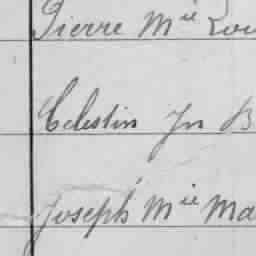 Pierre Mie Lou
Celestin Jn B
Joseph Mie Ma